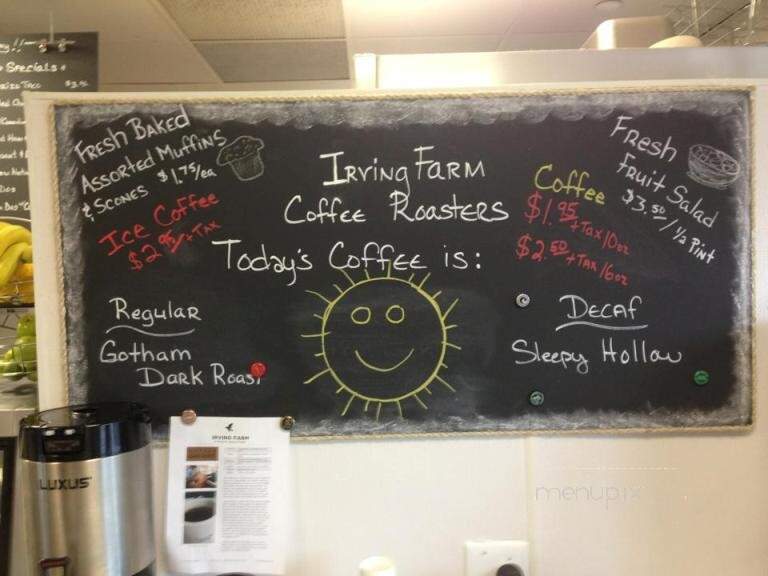 Specials
$3.50
Fresh Baked
Assorted Muffins
& Scones $1.75/ea
Ice Coffee
$2.95 + Tax
Irving Farm
Coffee Roasters
Today's Coffee is:
Coffee
$1.95 + Tax 10oz
$2.50 + Tax 16oz
Fresh
Fruit Salad
$3.50 / ½ Pint
Regular
Gotham
Dark Roast
Decaf
Sleepy Hollow
LUXUS
IRVING FARM
menupix